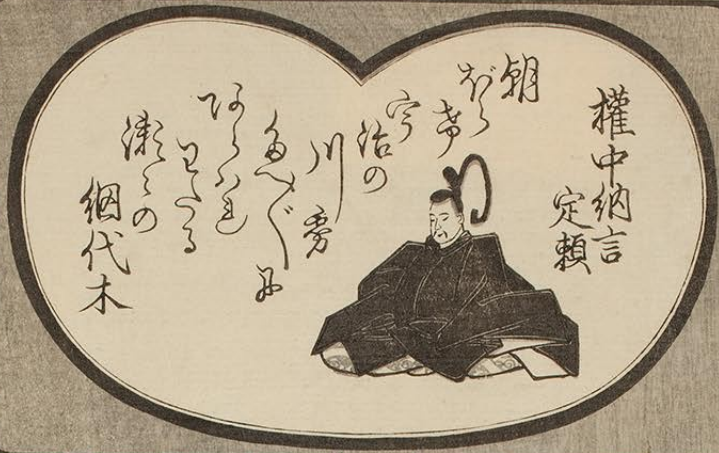 權中納言
定頼
朝
ぼらけ
宇
治の
川霧
たえ〴〵に
あらハれ
わたる
瀬〻の
網代木